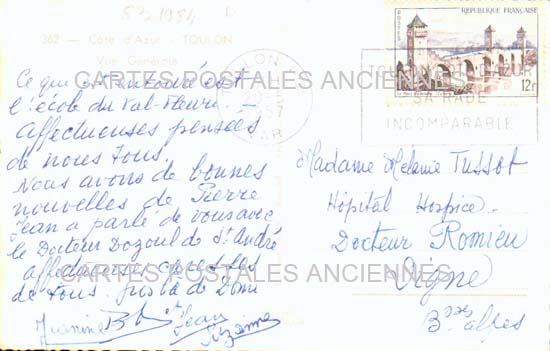 5 3 1954
362 - Côte d'Azur - TOULON
Vue Générale
Ce que est entouré est
l'école du Val-fleuri. -
Affectueuses pensées
de nous tous.
Nous avons de bonnes
nouvelles de Pierre
Jean a parlé de vous avec
le Docteur Dozoul de St André
Affectueuses caresses
de tous.
Jeanine
et Jean
Suzanne
TOULON
1957
VAR
SA RADE
INCOMPARABLE
REPUBLIQUE FRANÇAISE
12F
CARTES POSTALES ANCIENNES.COM
Madame Mélanie Tussot
Hôpital Hospice.
Docteur Romieu
Digne
Bses Alpes
CARTES POSTALES ANCIENNES.COM